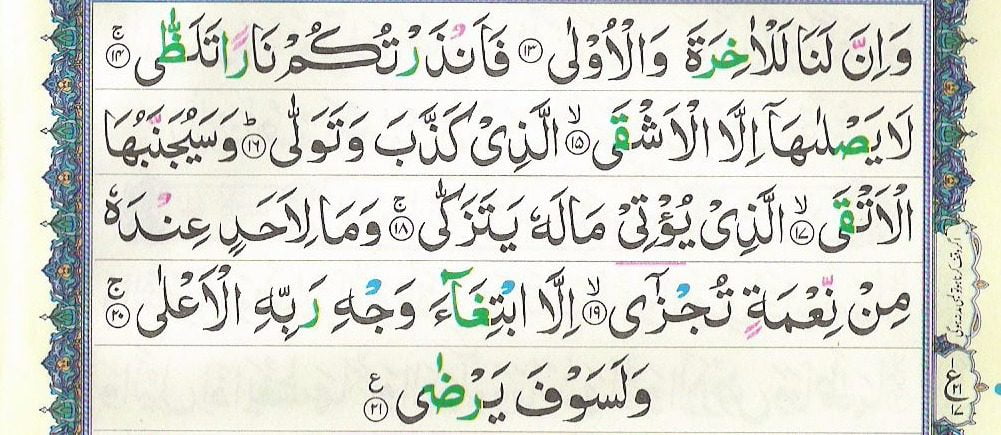 وَاِنَّ لَنَا لَلْاٰخِرَةَ وَالْاُوْلٰى ۝۱۳ فَاَنْذَرْتُكُمْ نَارًا تَلَظّٰى ۝۱۴ ۚ
لَا يَصْلٰىهَاۤ اِلَّا الْاَشْقَى ۝۱۵ ۙ الَّذِيْ كَذَّبَ وَتَوَلّٰى ۝۱۶ ؕ وَسَيُجَنَّبُهَا
الْاَتْقَى ۝۱۷ ۙ الَّذِيْ يُؤْتِيْ مَالَهٗ يَتَزَكّٰى ۝۱۸ ۚ وَمَا لِاَحَدٍ عِنْدَهٗ
مِنْ نِّعْمَةٍ تُجْزٰٓى ۝۱۹ ۙ اِلَّا ابْتِغَآءَ وَجْهِ رَبِّهِ الْاَعْلٰى ۝۲۰ ۚ
وَلَسَوْفَ يَرْضٰى ۝۲۱ ع
ع
۲۱
۱۷